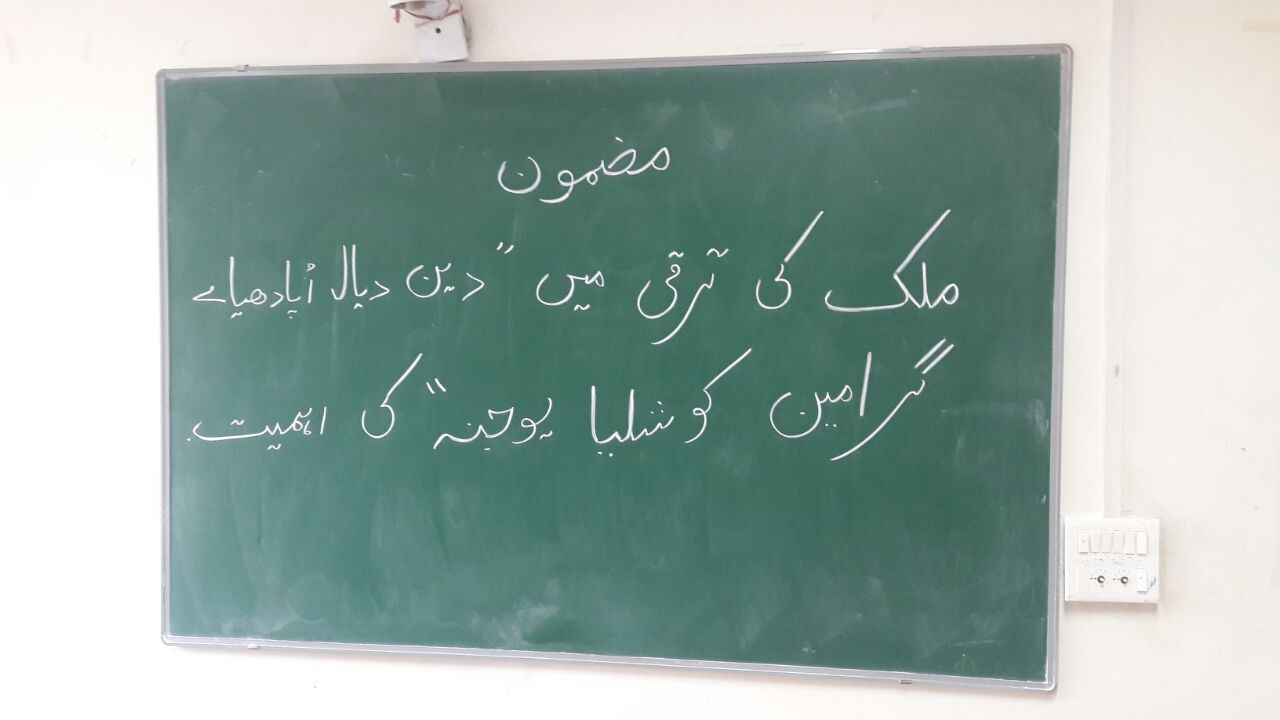 مضمون
ملک کی ترقی میں "دین دیال اُپادھیائے
گرامین کوشلیا یوجنہ" کی اہمیت۔